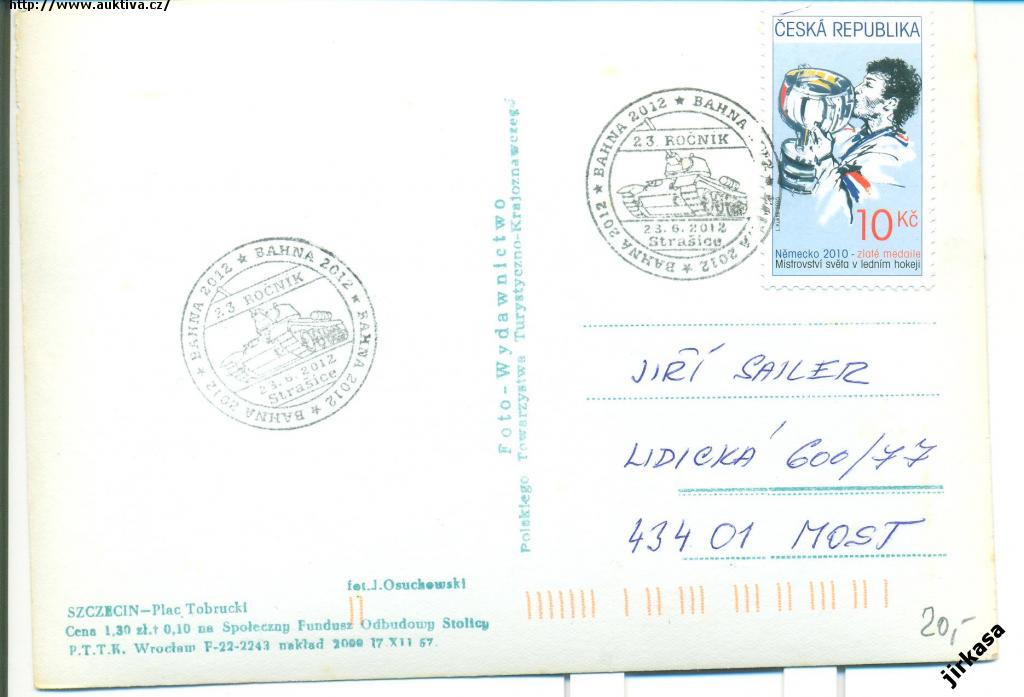 http://www.auktiva.cz/
ČESKÁ REPUBLIKA
10 Kč
Německo 2010 - zlaté medaile
Mistrovství světa v ledním hokeji
BAHNA 2012 ★ BAHNA 2012 ★ BAHNA 2012 ★ BAHNA 2012 ★
23. ROČNÍK
23.6.2012
Strašice
BAHNA 2012 ★ BAHNA 2012 ★ BAHNA 2012 ★ BAHNA 2012 ★
23. ROČNÍK
23.6.2012
Strašice
Foto-Wydawnictwo
Polskiego Towarzystwa Turystyczno-Krajoznawczego
JIŘÍ SAILER
LIDICKÁ 600/77
434 01 MOST
fot.J.Osuchowski
SZCZECIN—Plac Tobrucki
Cena 1,30 zł.† 0,10 na Społeczny Fundusz Odbudowy Stolicy
P.T.T.K. Wrocław F-22-2243 nakład 2000 17 XII 67.
20,-
jirkasa